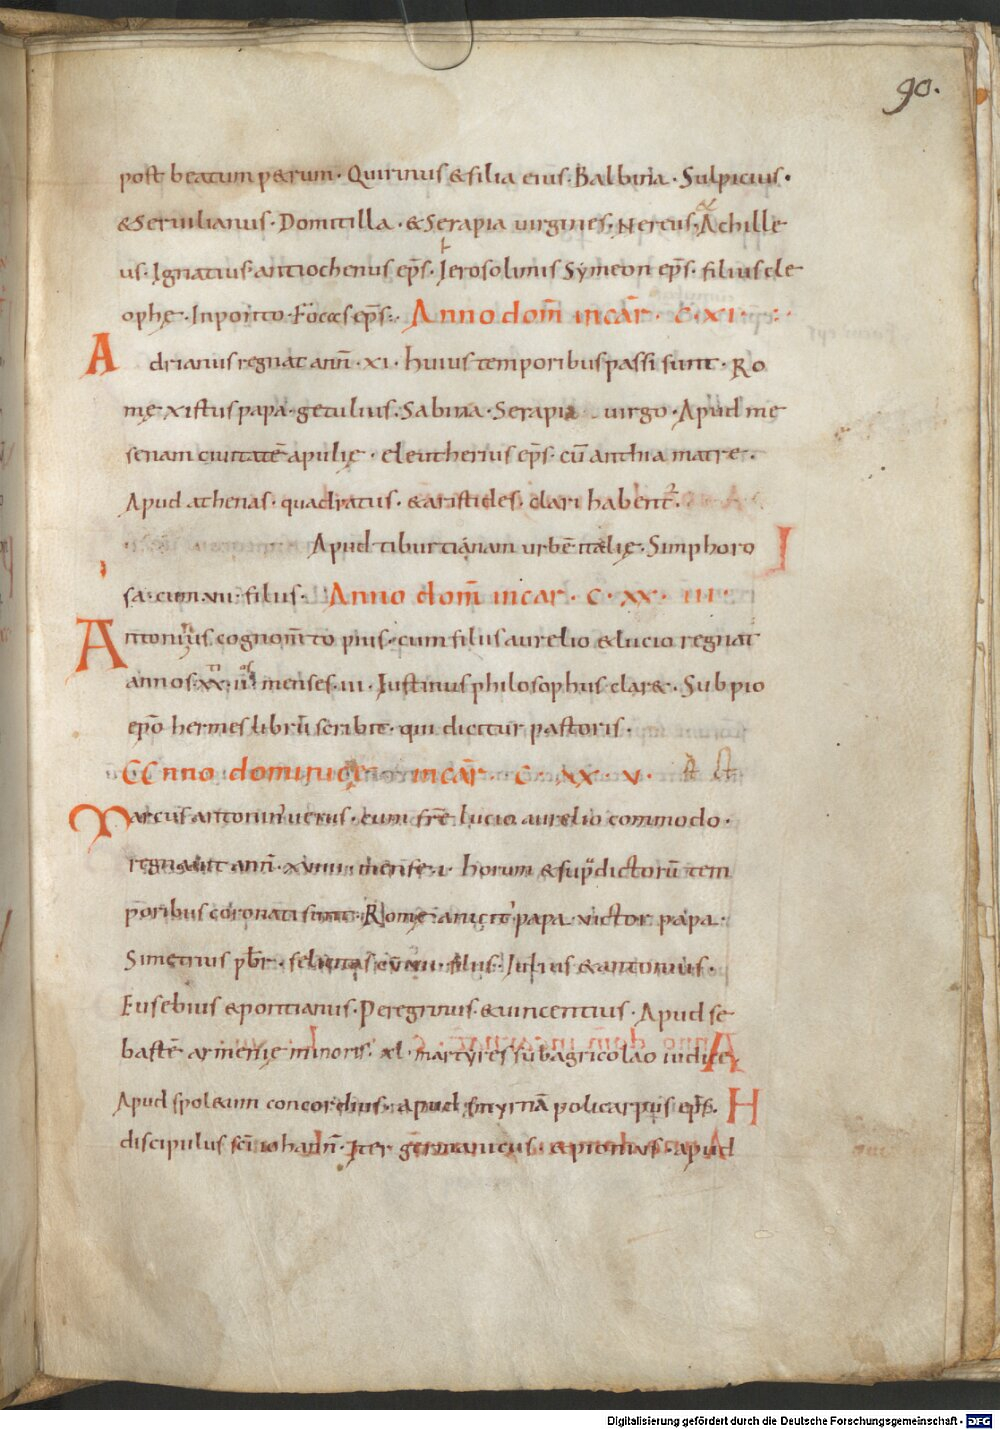 90.
post beatum petrum· Quirinus &filia eius· Balbina· Sulpicius·
&Seruilianus· Domitilla· &Serapia uirgines· Nereus· & Achille
us· Ignatius· antiochenus ep̄s· Ierosolimis Symeon ep̄s· filius cle
ophę· Inponto· Focas ep̄s·. Anno dom̄ incar̄· C·XI·
Adrianus regnat ann̄· xi· huius temporibus passi sunt· Ro
mę xistus papa· getulius· Sabina· Serapia uirgo· Apud me
senam ciuitatē apulię· eleutherius ep̄s· cū anthia matre·
Apud athenas· quadratus· &aristides· clari habent̄·
Apud tiburtianam urbē italię· Simphoro
sa· cum vii· filiis· Anno dom̄ incar· C·XX· III·
Antonius cognom̄to pius· cum filiis aurelio &lucio regnat
annos· xx· ii· menses· iii· Iustinus philosophus claret· Subpio
ep̄o hermes librū scribit· qui dicitur pastoris·
Anno dominicę incar̄· C· XX· V·
Marcus antonin' uerus· cum fr̄e lucio aurelio commodo·
regnauit ann̄· xviiii· mense· i· horum &sup̄dictorū tem
poribus coronati sunt· Romę anicit' papa· uictor papa·
Simetrius pb̄r· felicitas cū vii· filiis· Iulius &antonius·
Eusebius &pontianus· Peregrinus· &uincentius· Apud se
bastē armenię minoris· xl· martyres sub agricolao iudice
Apud spoletum concordius· apud smyrnā policarpus ep̄s·
discipulus sc̄i iohann̄· Iter germanicus· &pionius· apud
Digitalisierung gefördert durch die Deutsche Forschungsgemeinschaft - DFG